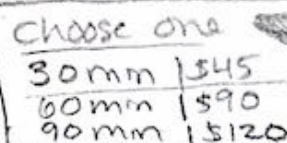 choose one
30mm | $45
60mm | $90
90mm | $120